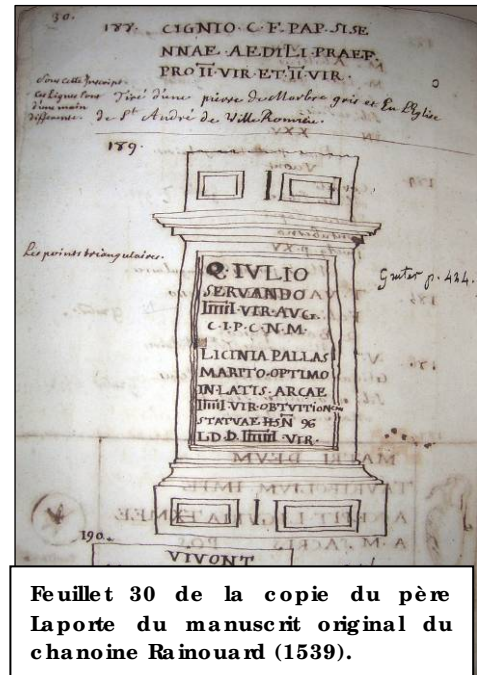 30.
188. CIGNIO. C. F. PAP. SISE
NNAE. AEDILI. PRAEF.
PRO IIVIR. ET. IIVIR.
Sous cette Inscript.
d'une main
differente.
Tiré d'une pierre de Marbre gris et En l'Eglise
de St André de Ville Romiéu.
189.
Les points triangulaires.
Gruter p. 424.
Q. IVLIO
SERVANDO
IIIIII. VIR. AVG.
C. I. P. C. N. M.
LICINIA PALLAS
MARITO. OPTIMO
IN. LATIS. ARCAE
IIIIII VIR. OBTVITION
STATVAE HSN 96
L. D. D. IIIIII VIR.
190.
VIVONT
Feuillet 30 de la copie du père
Laporte du manuscrit original du
chanoine Rainouard (1539).